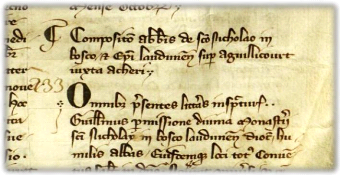 Composito abbis de sco Nicholao in
bosco & Epi laudunen sup aguillicourt
iuxta acheri
233
Omnibz presentes litas inspectur
Guillmus pmissione diuina Monastij
sci Nicholai in bosco laudunen dioc hu
milis abbas Eiusdemqz loci tot Conuen